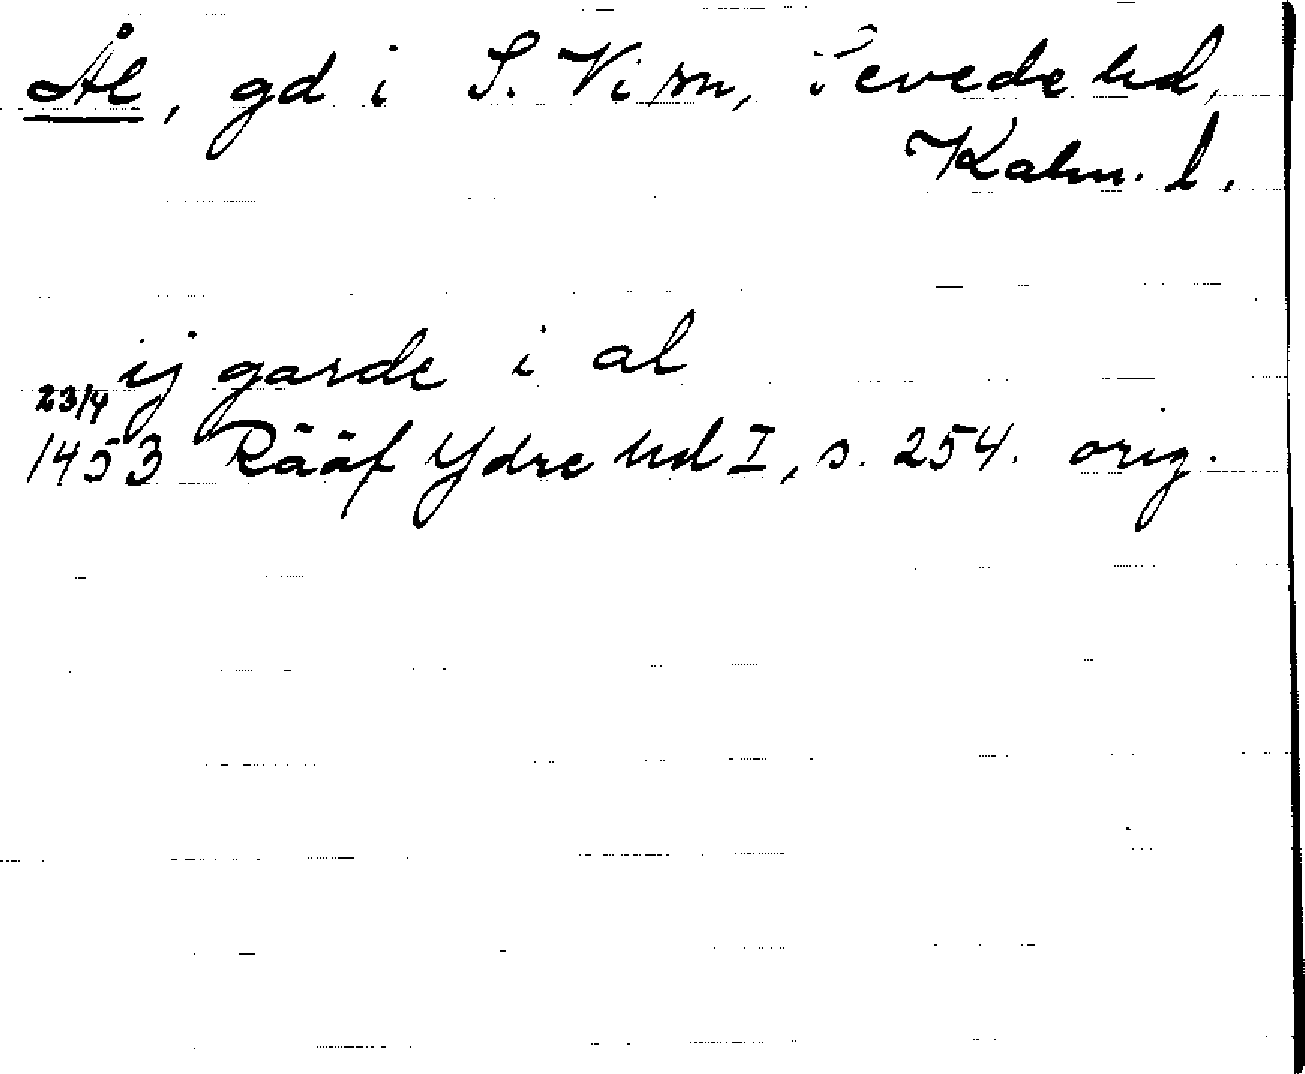 Ål, gd i S. Vi sn, Sevede hd,
Kalm. l.
ij garde i al
23/4
1453 Rääf Ydre hd I, s. 254. orig.